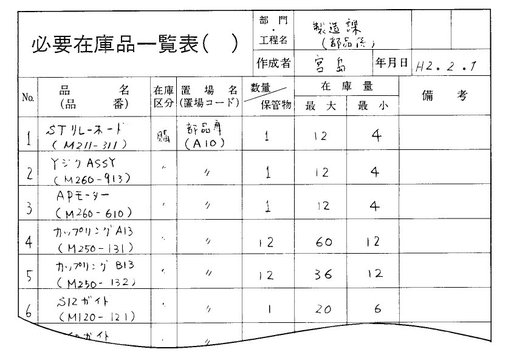 必要在庫品一覧表( )
部門・工程名 製造課(部品係)
作成者 宮島 年月日 H2.2.1
No. 品名(品番) 在庫区分 置場名(置場コード) 数量/保管物 在庫量 最大 最小 備考
1 STリレーボード(M211-311) 購 部品庫(A10) 1 12 4
2 Yジク ASSY(M260-913) 〃 〃 1 12 4
3 APモーター(M260-610) 〃 〃 1 12 4
4 カップリングA13(M250-131) 〃 〃 12 60 12
5 カップリングB13(M250-132) 〃 〃 12 36 12
6 S12ガイド(M120-121) 〃 〃 1 20 6